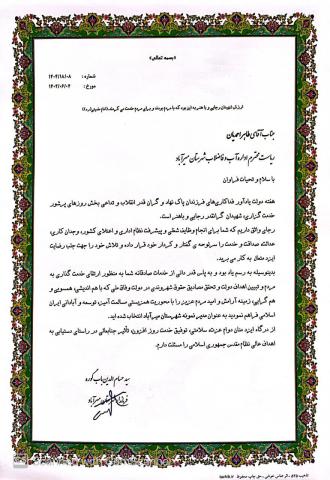 «بسمه تعالی»
شماره : ۱۴۰۲/۱۸/۰۸
مورخ : ۱۴۰۲/۰۶/۰۴
ارزش شهیدان رجایی و باهنر به این بود که با مردم بودند و برای مردم خدمت می کردند
جناب آقای طاهر احمدیان
ریاست محترم اداره آب و فاضلاب شهرستان میرآباد
با سلام و تحیات فراوان
هفته دولت یادآور فداکاری‌های فرزندان پاک نهاد و گران قدر انقلاب و تداعی بخش روزهای پرشور
خدمت گزاری، شهیدان گرانقدر رجایی و باهنر است.
رجای واثق داریم که شما برای انجام وظایف شغلی و پیشرفت نظام اداری و اعتلای کشور، وجدان کاری،
عدالت صداقت و خدمت را سرلوحه ی گفتار و کردار خود قرار داده و تلاش خود را جهت جلب رضایت
ایزد متعال به کار می برید.
بدینوسیله به رسم یاد بود و به پاس قدر دانی از خدمات صادقانه شما به منظور ارتقای خدمت گذاری به
مردم و تبیین اهداف دولت و تحقق مصادیق حقوق شهروندی در دولت وفاق ملی که با هم اندیشی، همسویی و
هم گرایی، زمینه آرامش و امید مردم عزیز را با محوریت همزیستی مسالمت آمیز، توسعه و آبادانی ایران
اسلامی فراهم نمودید به عنوان مدیر نمونه شهرستان میرآباد انتخاب شده اید.
از درگاه ایزد منان دوام عزت، سلامتی، توفیق خدمت روز افزون، تأثیر جنابعالی در راستای دستیابی به
اهداف عالی نظام مقدس جمهوری اسلامی را مسئلت دارم.
سید حسام الدین باب گوره